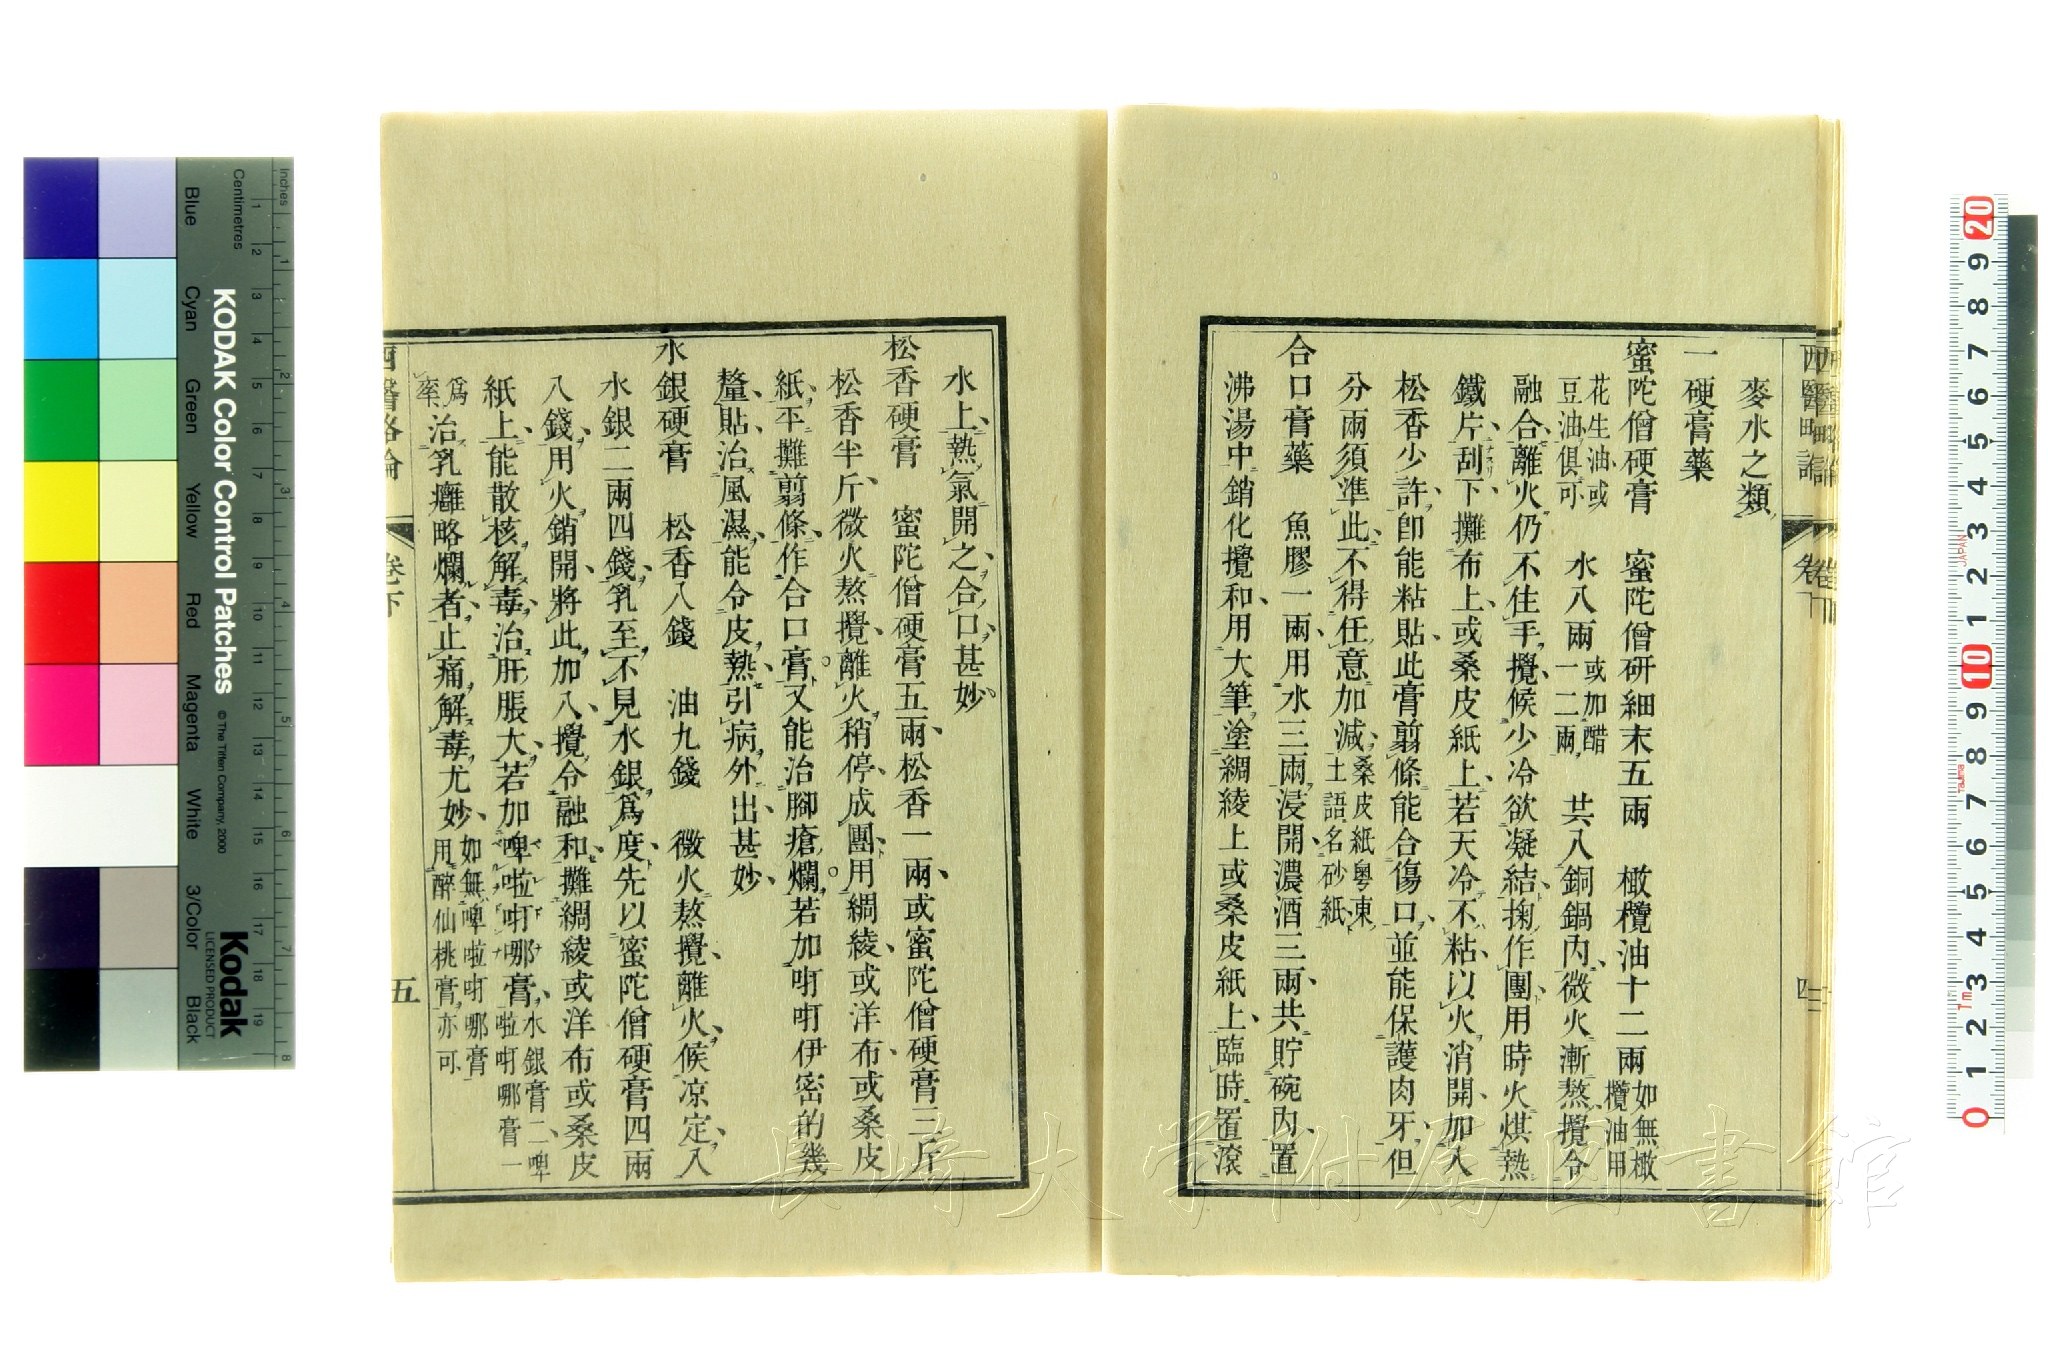 麥水之類
一硬膏藥
蜜陀僧硬膏　蜜陀僧研細末五兩　橄欖油十二兩如無橄欖油用
花生油或豆油俱可　水八兩或加醋一二兩　共入銅鍋內微火漸熬攪令
融合離火仍不住手攪候少冷欲凝結掬作團用時火烘熱
鐵片刮下攤布上或桑皮紙上若天冷不粘以火消開加入
松香少許卽能粘貼此膏剪條能合傷口並能保護肉牙但
分兩須準此不得任意加減桑皮紙粤東土語名砂紙
合口膏藥　魚膠一兩用水三兩浸開濃酒三兩共貯碗內置
沸湯中銷化攪和用大筆塗綢綾上或桑皮紙上臨時置滾
西醫略論
卷下
四
水上熱氣開之合口甚妙
松香硬膏　蜜陀僧硬膏五兩松香一兩或蜜陀僧硬膏三斤
松香半斤微火熬攪離火稍停成團用綢綾或洋布或桑皮
紙平攤剪條作合口膏又能治腳瘡爛若加㖿㖿伊密的幾
釐貼治風濕能令皮熱引病外出甚妙
水銀硬膏　松香八錢　油九錢　微火熬攪離火候凉定入
水銀二兩四錢乳至不見水銀爲度先以蜜陀僧硬膏四兩
八錢用火銷開將此加入攪令融和攤綢綾或洋布或桑皮
紙上能散核解毒治肝脹大若加啤啦㖿哪膏水銀膏二啤啦㖿哪膏一
爲率治乳癰略爛者止痛解毒尤妙如無啤啦㖿哪膏用醉仙桃膏亦可
西醫略論
卷下
五
KODAK Color Control Patches
© The Tiffen Company, 2000
Kodak
LICENSED PRODUCT
Inches
Centimetres
Blue
Cyan
Green
Yellow
Red
Magenta
White
3/Color
Black
1 2 3 4 5 6 7 8 9 10 11 12 13 14 15 16 17 18 19
1 2 3 4 5 6 7 8
20 9 8 7 6 5 4 3 2 1 10 9 8 7 6 5 4 3 2 1 0
JAPAN
1m
長崎大学附属図書館